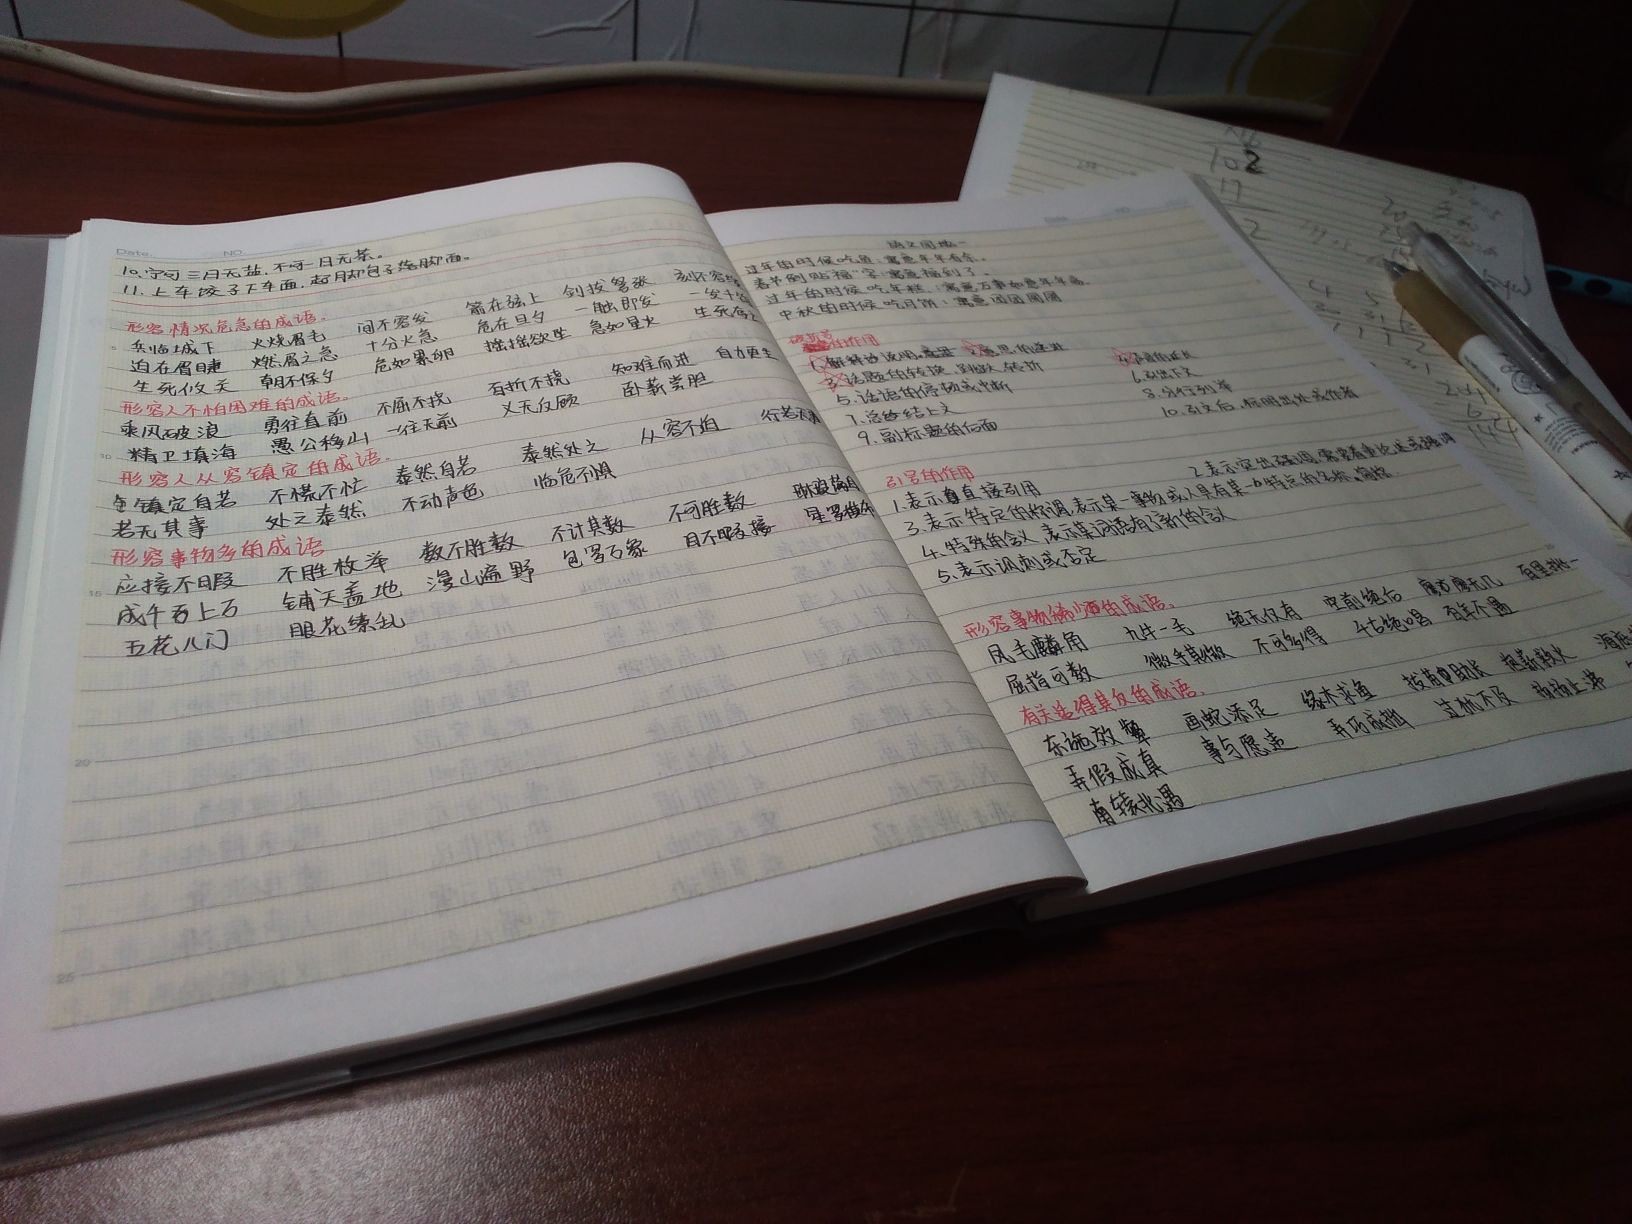 Date. NO.
10.宁可三日无盐,不可一日无茶。
11.上车饺子下车面,起脚包子落脚面。
形容情况危急的成语。
兵临城下 火烧眉毛 间不容发 箭在弦上 剑拔弩张 刻不容缓
迫在眉睫 燃眉之急 十分火急 危在旦夕 一触即发 一发千钧
生死攸关 朝不保夕 危如累卵 摇摇欲坠 急如星火 生死存亡
形容人不怕困难的成语。
乘风破浪 勇往直前 不屈不挠 百折不挠 知难而进 自力更生
精卫填海 愚公移山 一往无前 义无反顾 卧薪尝胆
形容人从容镇定的成语.
镇定自若 不慌不忙 泰然自若 泰然处之 从容不迫
若无其事 处之泰然 不动声色 临危不惧
形容事物多的成语
应接不暇 不胜枚举 数不胜数 不计其数 不可胜数
成千万上万 铺天盖地 漫山遍野 包罗万象 目不暇接
五花八门 眼花缭乱
15
20
25
过年的时候吃鱼:寓意年年有余。
春节倒贴福"字:寓意福到了。
过年的时候吃年糕:寓意万事如意年年高。
中秋的时候吃月饼:寓意团团圆圆
的作用
解释说明 意思的递进
话题的转换,跳跃,转折 6.引出下文
5.话语的停顿或中断 8.分行列举
7.总结上文 10.引文后,标明出处或作者
9.副标题的后面
引号的作用
1.表示直接引用
3.表示特定的称谓,表示某一事物或人具有某一特点的名称、简称
4.特殊含义,表示某词语有了新的含义
5.表示讽刺或否定
形容事物稀少的成语.
凤毛麟角 九牛一毛 绝无仅有 空前绝后 寥寥无几 百里挑一
屈指可数 微乎其微 不可多得 千古绝唱 百年不遇
有关适得其反的成语.
东施效颦 画蛇添足 缘木求鱼 拔苗助长 抱薪救火
弄假成真 事与愿违 弄巧成拙 过犹不及 扬扬止沸
南辕北辙
102
17